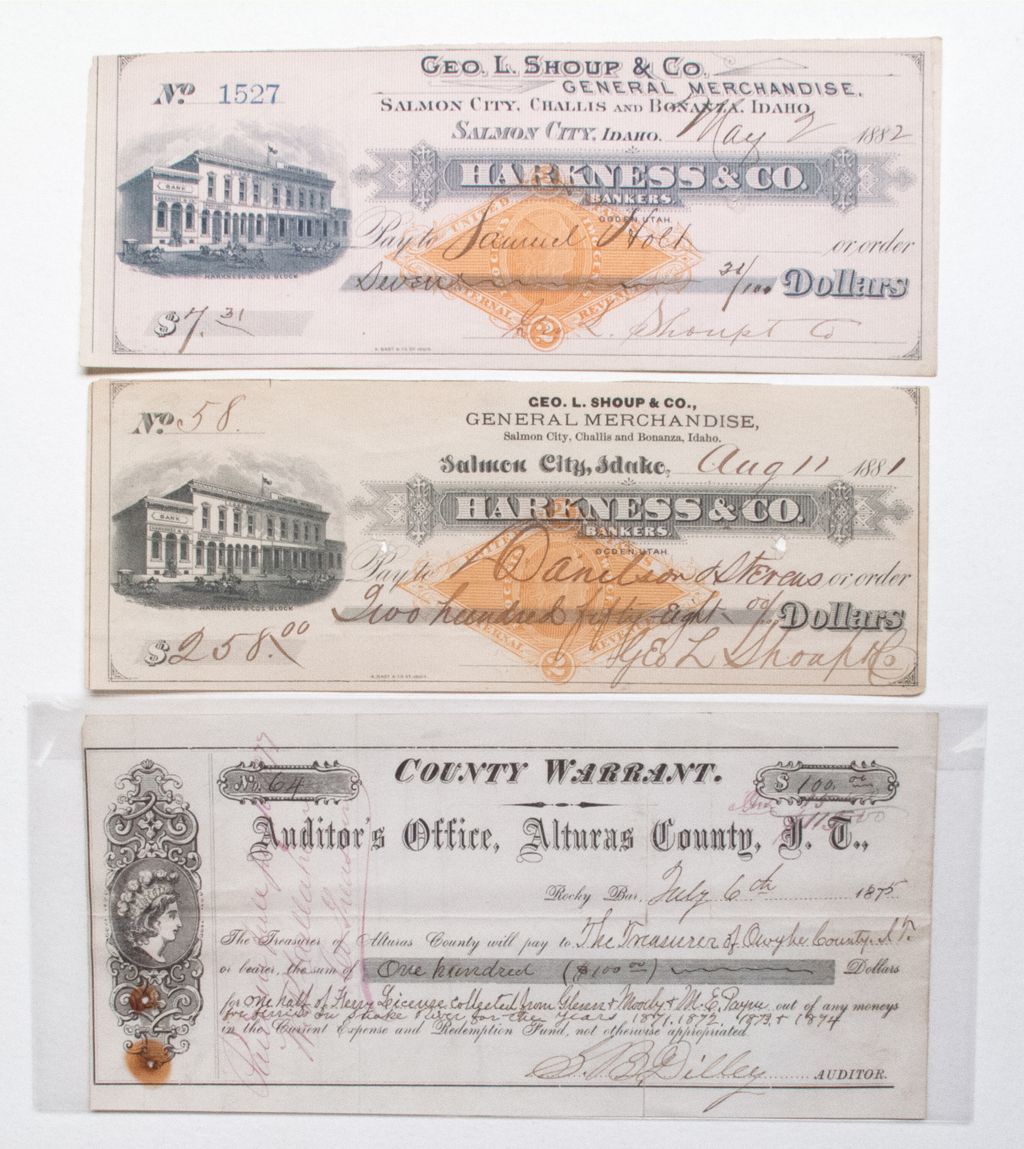 GEO. L. SHOUP & CO.
GENERAL MERCHANDISE,
Nº 1527
SALMON CITY, CHALLIS AND BONANZA, IDAHO.
SALMON CITY, IDAHO. May 2 1882
BANK
HARKNESS & CO.
BANKERS.
OGDEN, UTAH.
UNITED
Pay to Samuel Holt or order
HARKNESS & CO'S BLOCK
Seven 31/100 Dollars
INTERNAL REVENUE
2
$7.31 Geo L. Shoup & Co
GEO. L. SHOUP & CO.,
Nº 58.
GENERAL MERCHANDISE,
Salmon City, Challis and Bonanza, Idaho.
Salmon City, Idaho, Aug 11 1881
BANK
HARKNESS & CO.
BANKERS.
OGDEN, UTAH.
UNITED
Pay to Danilson & Stevens or order
HARKNESS & CO'S BLOCK
Two hundred fifty-eight 00/ Dollars
INTERNAL REVENUE
2
$258.00 Geo L Shoup & Co
COUNTY WARRANT.
No. 64
$ 100.00
Auditor's Office, Alturas County, I. T.,
Rocky Bar, July 6th 1875
The Treasurer of Alturas County will pay to The Treasurer of Owyhe County I. T.
or bearer, the sum of One hundred ($100 00) Dollars
for one half of Ferry License collected from Glenn & Moody & M. E. Payne out of any moneys
for ferries on Snake River for the years 1871. 1872. 1873. & 1874
in the Current Expense and Redemption Fund, not otherwise appropriated.
S. B. Dilley AUDITOR.